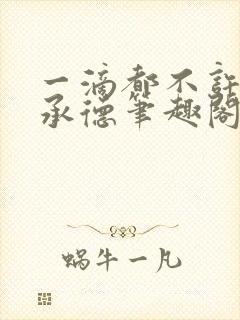 一滴都不許
承德筆趣閣
蝸牛一凡